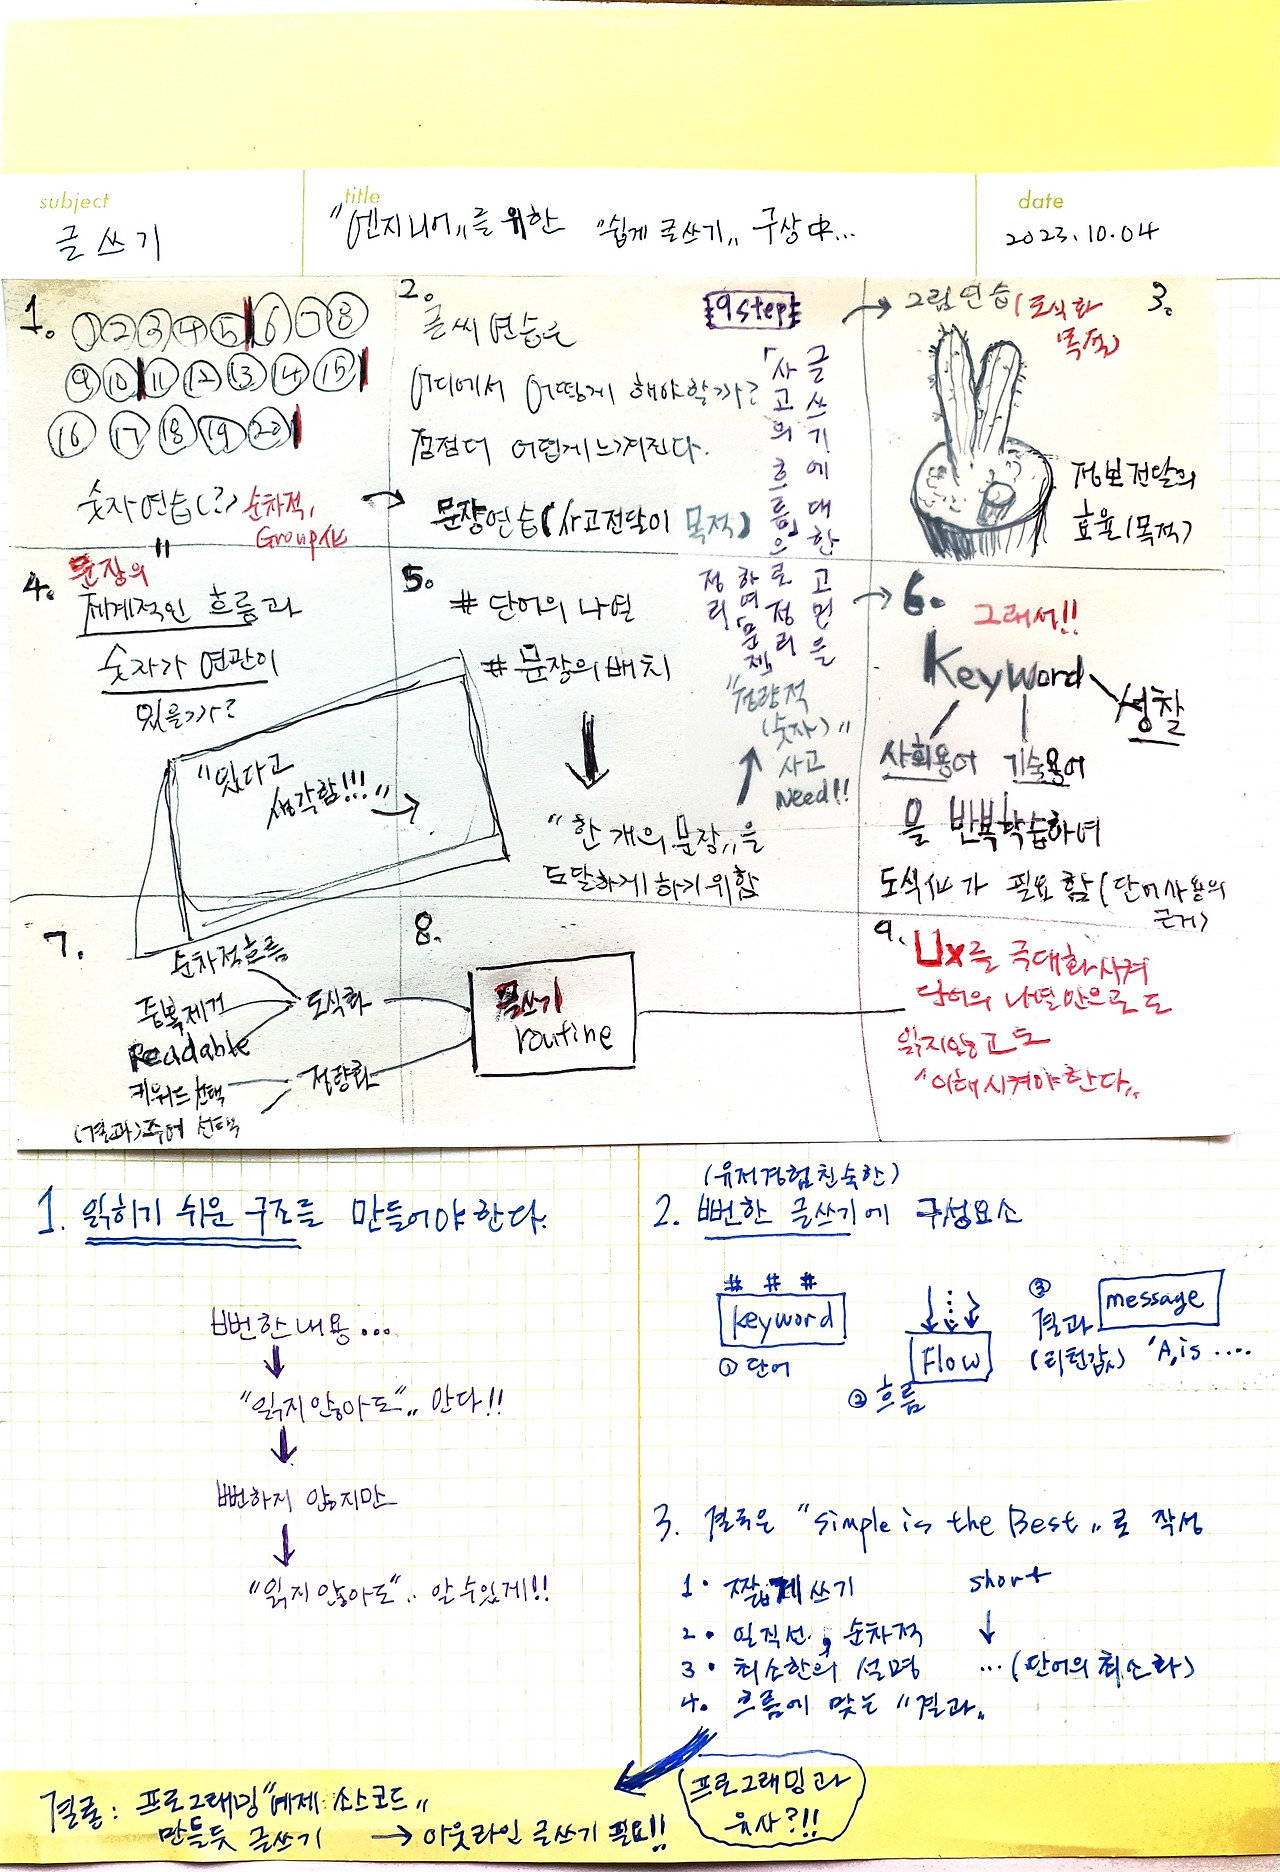 subject
글쓰기
title
"엔지니어"를 위한 "쉽게 글쓰기" 구상中...
date
2023.10.04
1.
① ② ③ ④ ⑤ ⑥ ⑦ ⑧
⑨ ⑩ ⑪ ⑫ ⑬ ⑭ ⑮
⑯ ⑰ ⑱ ⑲ ⑳
숫자연습(?) 순차적,
Group化
2.
글씨 연습은
어디에서 어떻게 해야할까?
점점더 어렵게느껴진다.
문장연습(사고전달이 목적)
9 step
글쓰기에 대한 고민을
「사고의 흐름」으로 정리
하여 「문제」
정리
3.
그림연습(도식화
목적)
정보전달의
효율(목적)
4. 문장의
체계적인 흐름과
숫자가 연관이
있을까?
"있다고
생각함!!!"
5.
# 단어의 나열
# 문장의 배치
"한 개의 문장"을
도달하게 하기위함
"정량적
(숫자)"
사고
Need!!
6.
그래서!!
Keyword
성찰
사회용어 기술용어
을 반복학습하여
도식化가 필요함(단어사용의
근거)
7.
순차적흐름
중복제거
Readable
키워드 선택
(결과)주어 선택
도식화
정량화
8.
글쓰기
routine
9. Ux를 극대화시켜
단어의 나열만으로도
읽지않고도
"이해시켜야한다"
1. 읽히기 쉬운 구조를 만들어야한다.
뻔한내용...
"읽지않아도".. 안다!!
뻔하지 않지만
"읽지않아도".. 알수있게!!
(유저경험친숙한)
2. 뻔한 글쓰기에 구성요소
# # #
keyword
① 단어
Flow
② 흐름
③
결과
(리턴값)
message
'A,is ....
3. 결론은 "Simple is the Best"로 작성
1. 짧게쓰기 short
2. 일직선, 순차적
3. 최소한의 설명 ...(단어의최소화)
4. 흐름에 맞는 "결과"
프로그래밍과
유사?!!
결론: 프로그래밍"예제 소스코드"
만들듯 글쓰기 → 아웃라인 글쓰기 필요!!